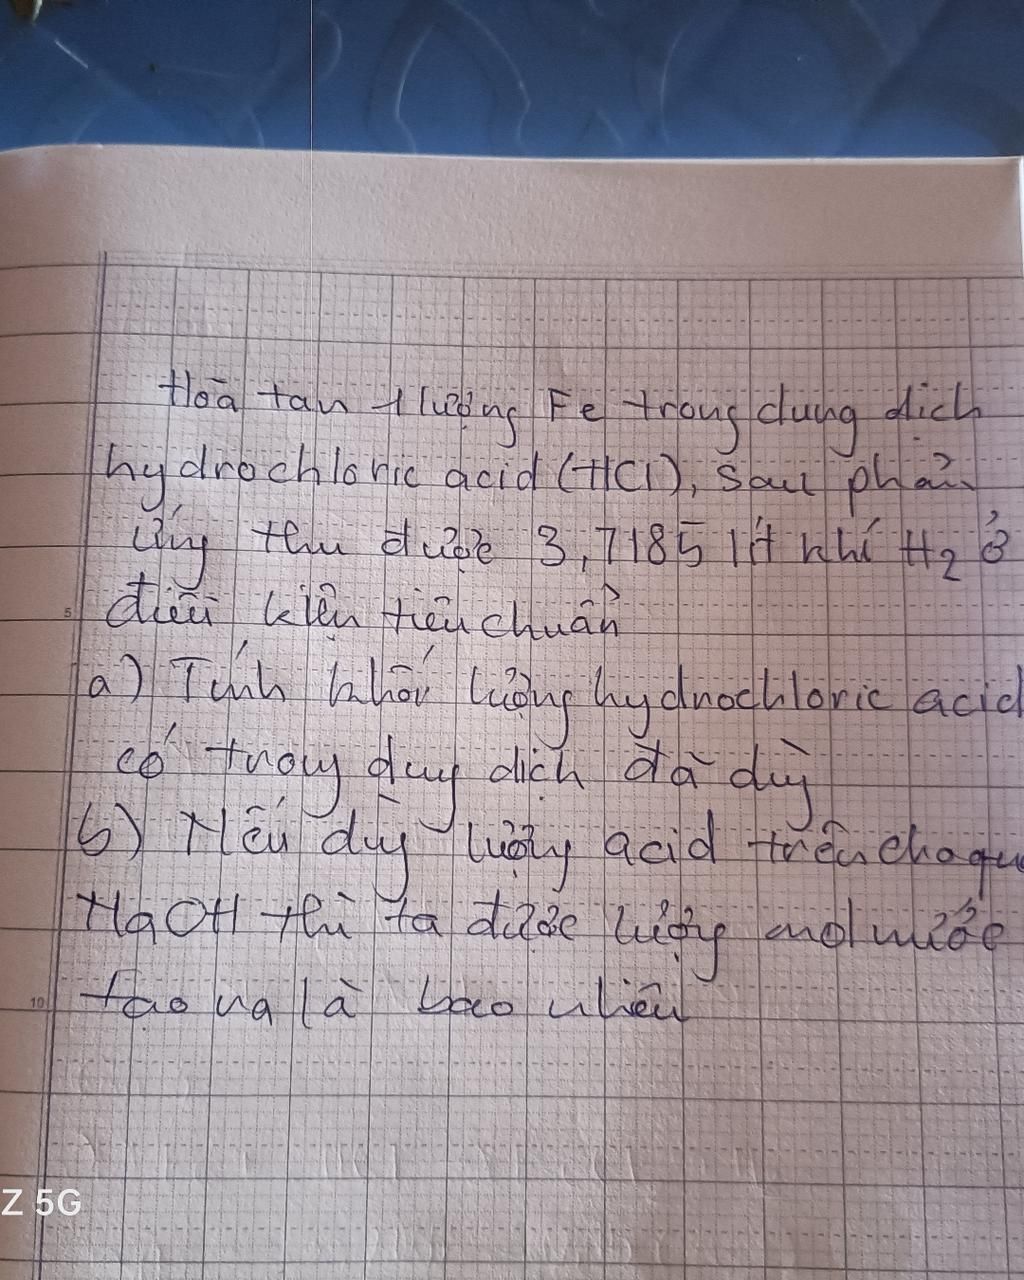 Hoà tan 1 lượng Fe trong dung dịch
hydrochloric acid (HCl), sau phản
ứng thu được 3,7185 lít khí H2 ở
điều kiện tiêu chuẩn
a) Tính khối lượng hydrochloric acid
có trong dung dịch đã dùng
b) Nếu dùng lượng acid trên cho qua
NaOH thì ta được lượng mol nước
tạo ra là bao nhiêu
5
10
Z 5G